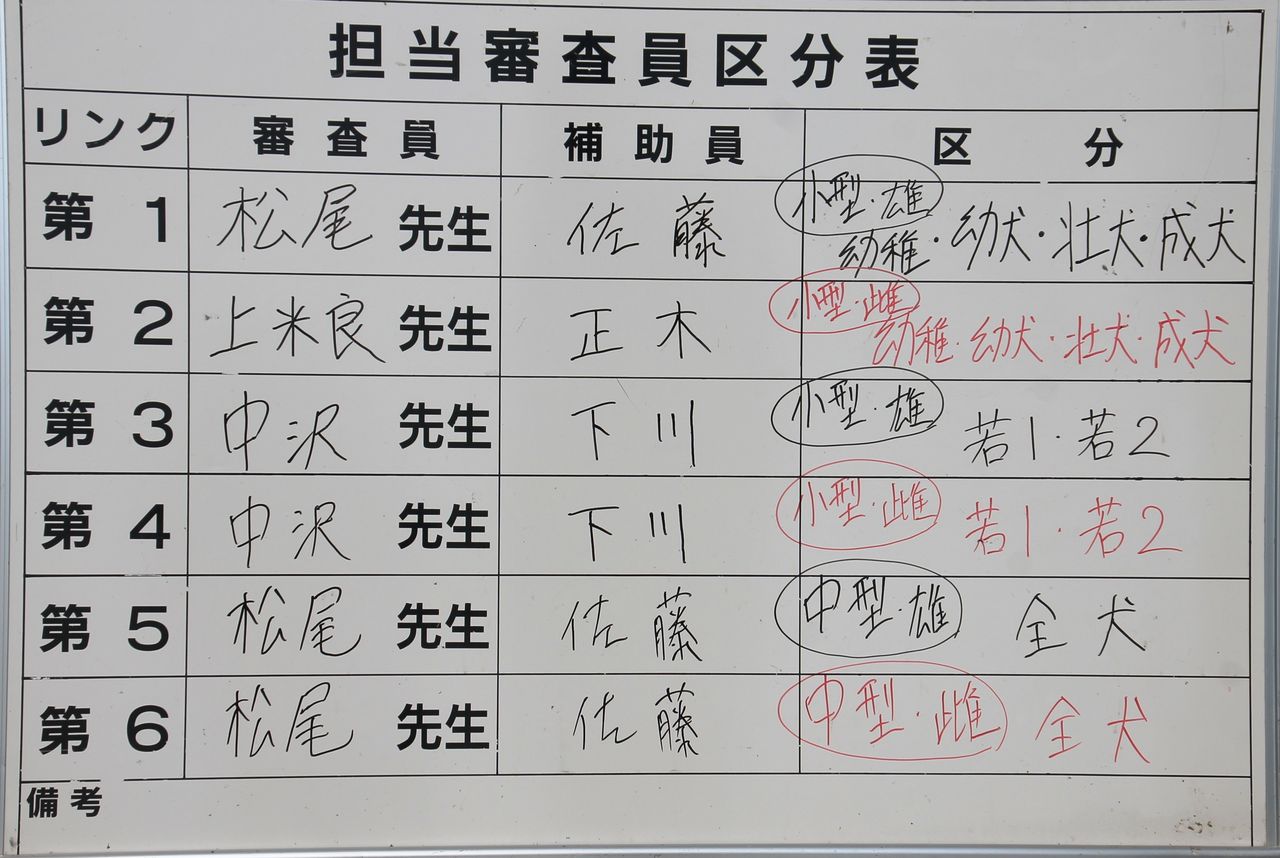 担当審査員区分表
リンク 審査員 補助員 区分
第1 松尾 先生 佐藤 小型・雄 幼稚・幼犬・壮犬・成犬
第2 上米良 先生 正木 小型・雌 幼稚・幼犬・壮犬・成犬
第3 中沢 先生 下川 小型・雄 若1・若2
第4 中沢 先生 下川 小型・雌 若1・若2
第5 松尾 先生 佐藤 中型・雄 全犬
第6 松尾 先生 佐藤 中型・雌 全犬
備考